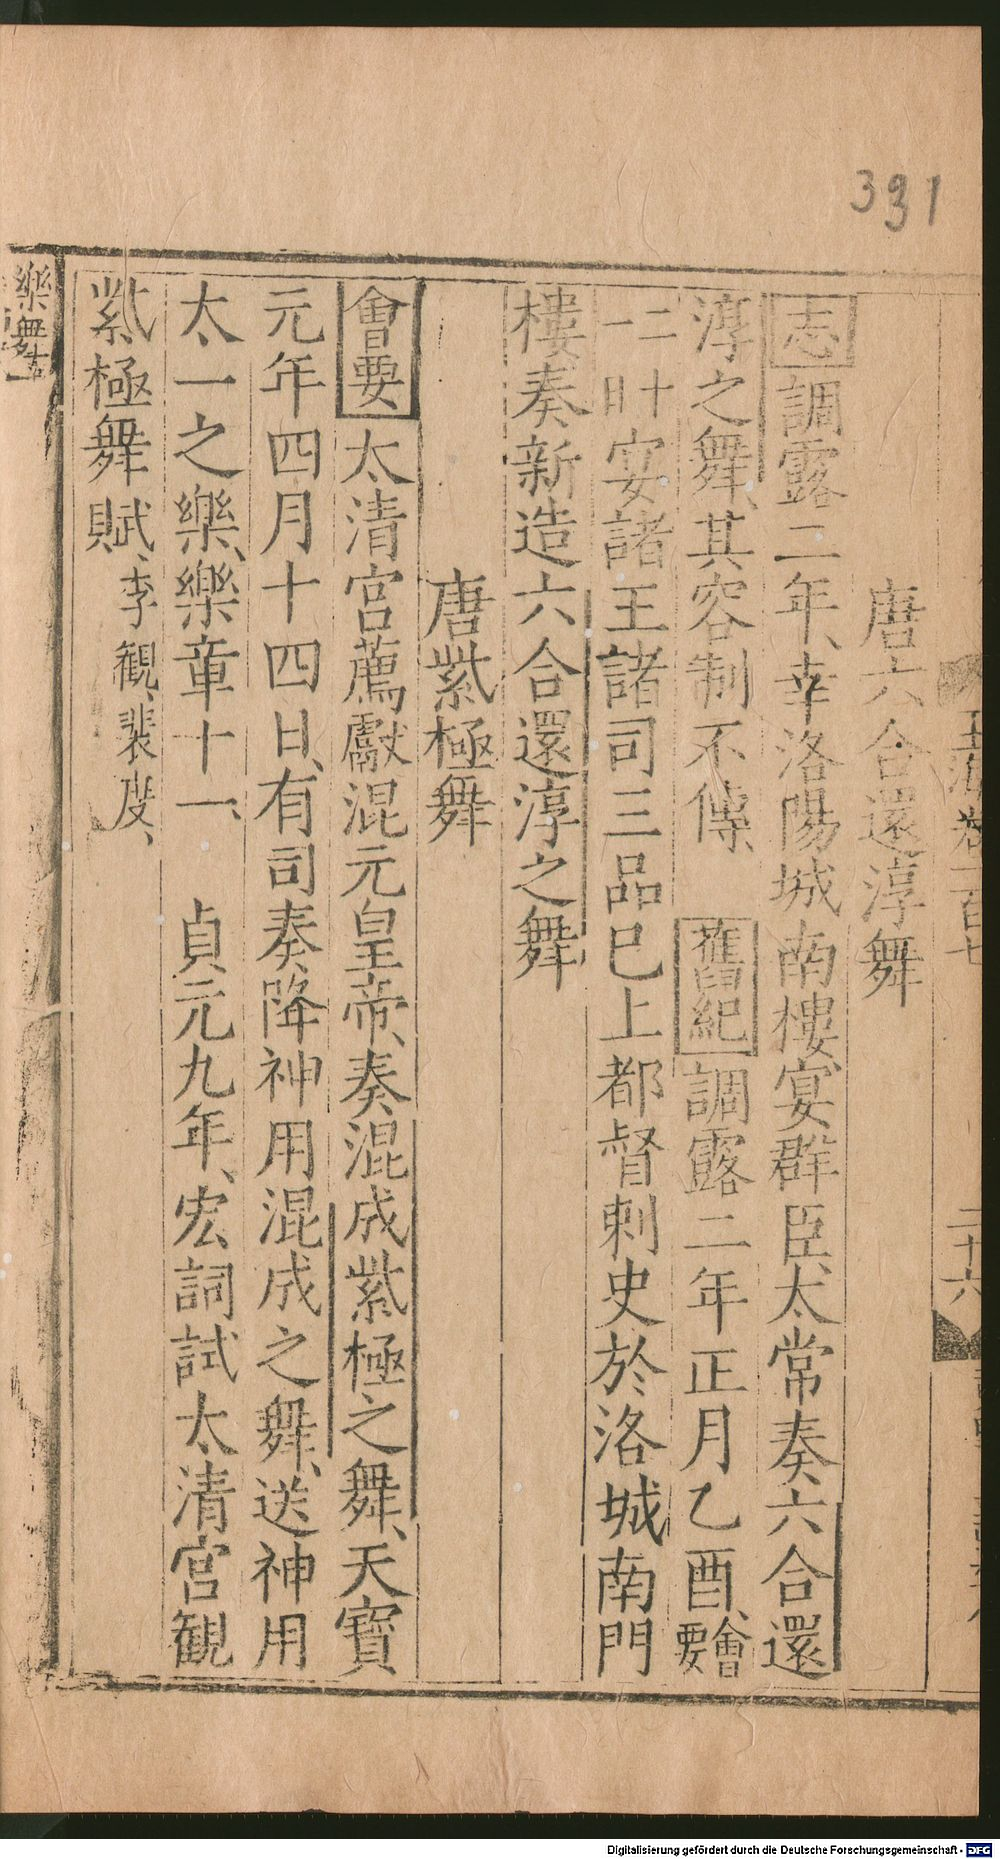 391
唐六合還淳舞
志調露二年、幸洛陽城南樓、宴群臣、太常奏六合還
淳之舞、其容制不傳、 舊紀調露二年正月乙酉、會要
二十一日宴諸王諸司三品已上都督刺史於洛城南門
樓、奏新造六合還淳之舞
唐紫極舞
會要太清宮薦獻混元皇帝、奏混成紫極之舞、天寶
元年四月十四日、有司奏降神用混成之舞、送神用
太一之樂、樂章十一、 貞元九年、宏詞試太清宮観
紫極舞賦、李観、裴度、
樂舞
玉海卷一百七
二十六
Digitalisierung gefördert durch die Deutsche Forschungsgemeinschaft - DFG